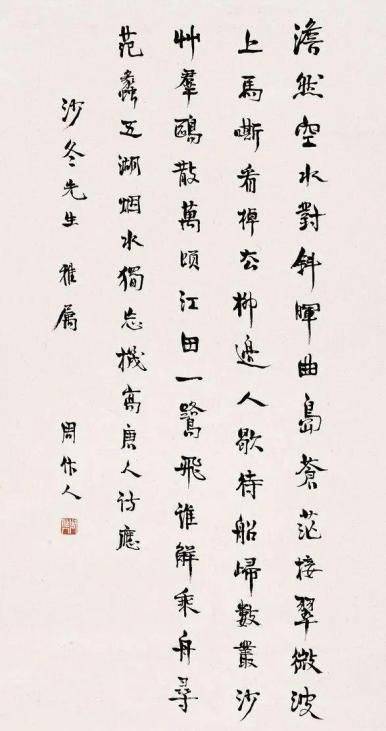 澹然空水對斜暉曲島蒼茫接翠微波
上馬嘶看棹去柳邊人歇待船歸數叢沙
艸羣鷗散萬頃江田一鷺飛誰解乘舟尋
范蠡五湖烟水獨忘機寫唐人詩應
沙冬先生 雅屬 周作人